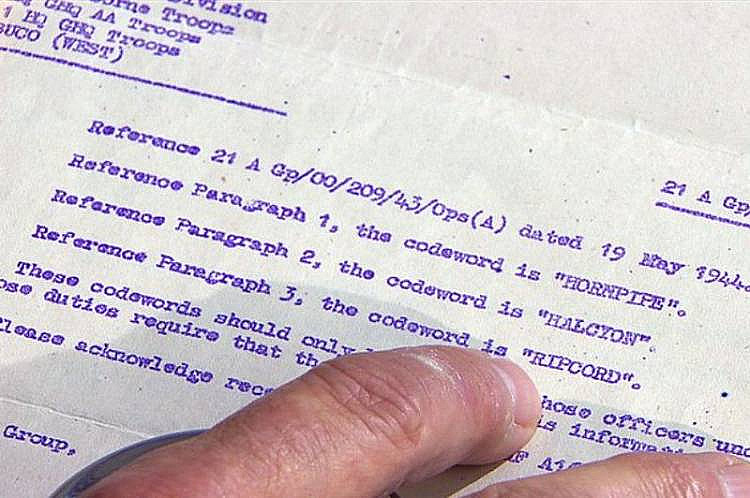 ivision
orne Troops
GHQ AA Troops
1 HQ GHQ Troops
BUCO (WEST)
21 A Gp
Reference 21 A Gp/00/209/43/Ops(A) dated 19 May 1944.
Reference Paragraph 1, the codeword is "HORNPIPE".
Reference Paragraph 2, the codeword is "HALCYON".
Reference Paragraph 3, the codeword is "RIPCORD".
These codewords should only hose officers und
ose duties require that th is informati
lease acknowledge rece
Group,